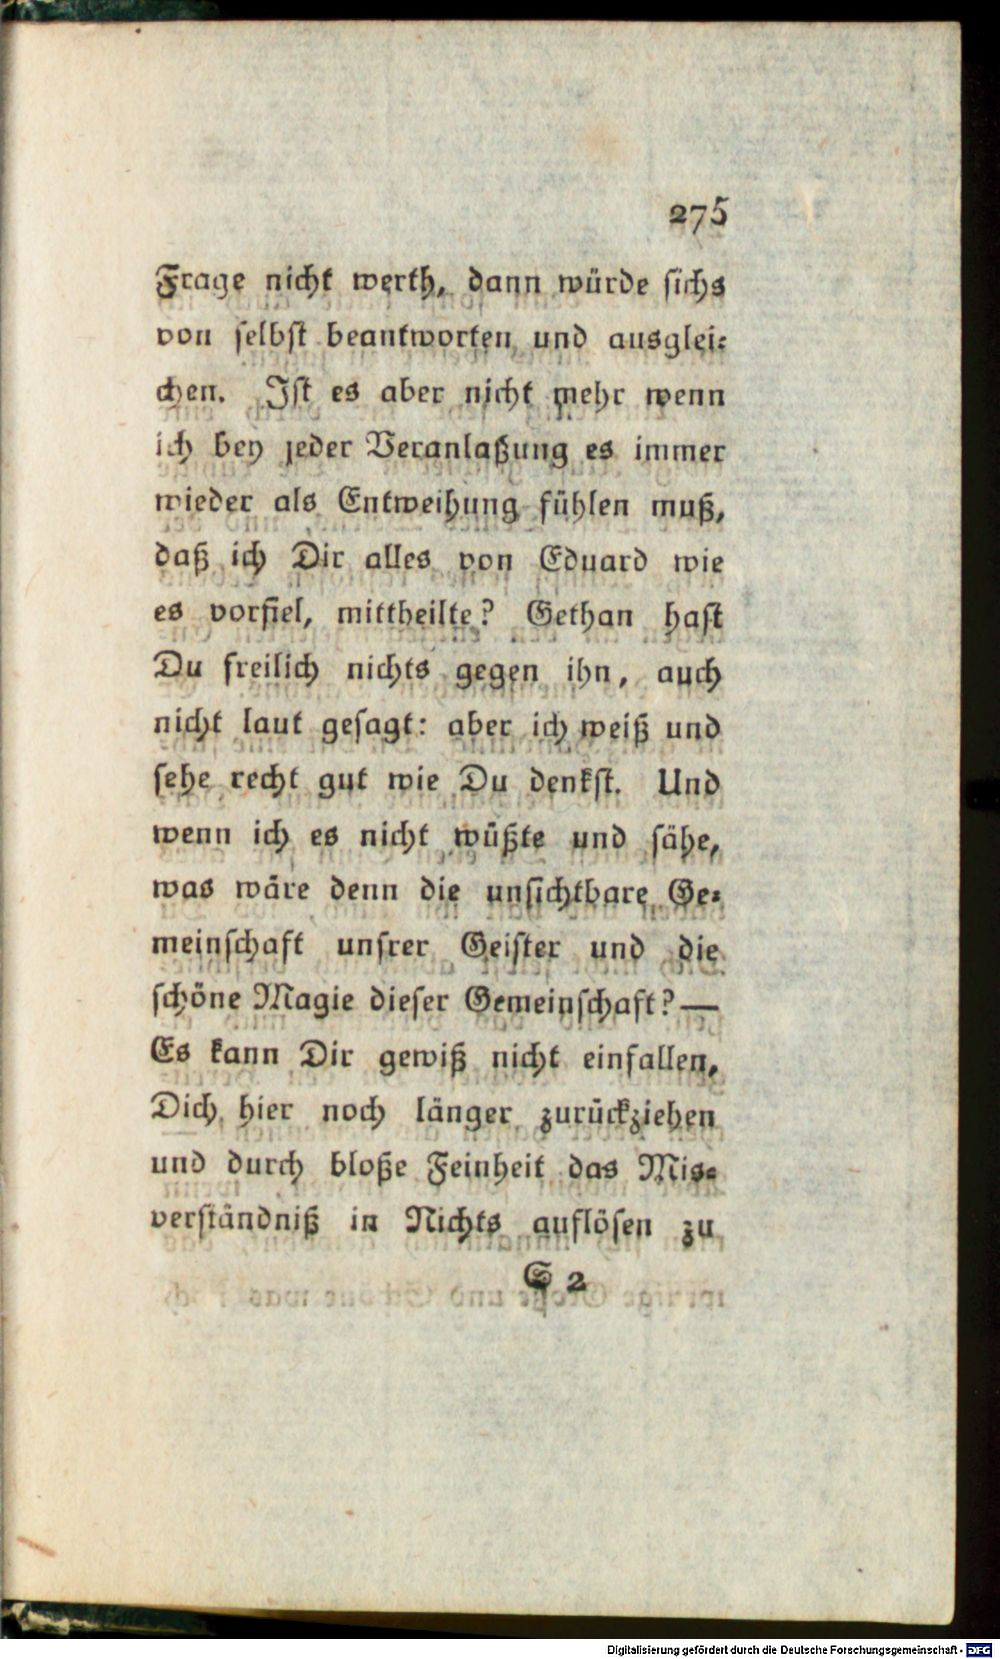 275
Frage nicht werth, dann würde sichs
von selbst beantworten und ausglei⸗
chen. Ist es aber nicht mehr wenn
ich bey jeder Veranlaßung es immer
wieder als Entweihung fühlen muß,
daß ich Dir alles von Eduard wie
es vorfiel, mittheilte? Gethan hast
Du freilich nichts gegen ihn, auch
nicht laut gesagt: aber ich weiß und
sehe recht gut wie Du denkst. Und
wenn ich es nicht wüßte und sähe,
was wäre denn die unsichtbare Ge⸗
meinschaft unsrer Geister und die
schöne Magie dieser Gemeinschaft? —
Es kann Dir gewiß nicht einfallen,
Dich hier noch länger zurückziehen
und durch bloße Feinheit das Mis⸗
verständniß in Nichts auflösen zu
S 2
Digitalisierung gefördert durch die Deutsche Forschungsgemeinschaft - DFG